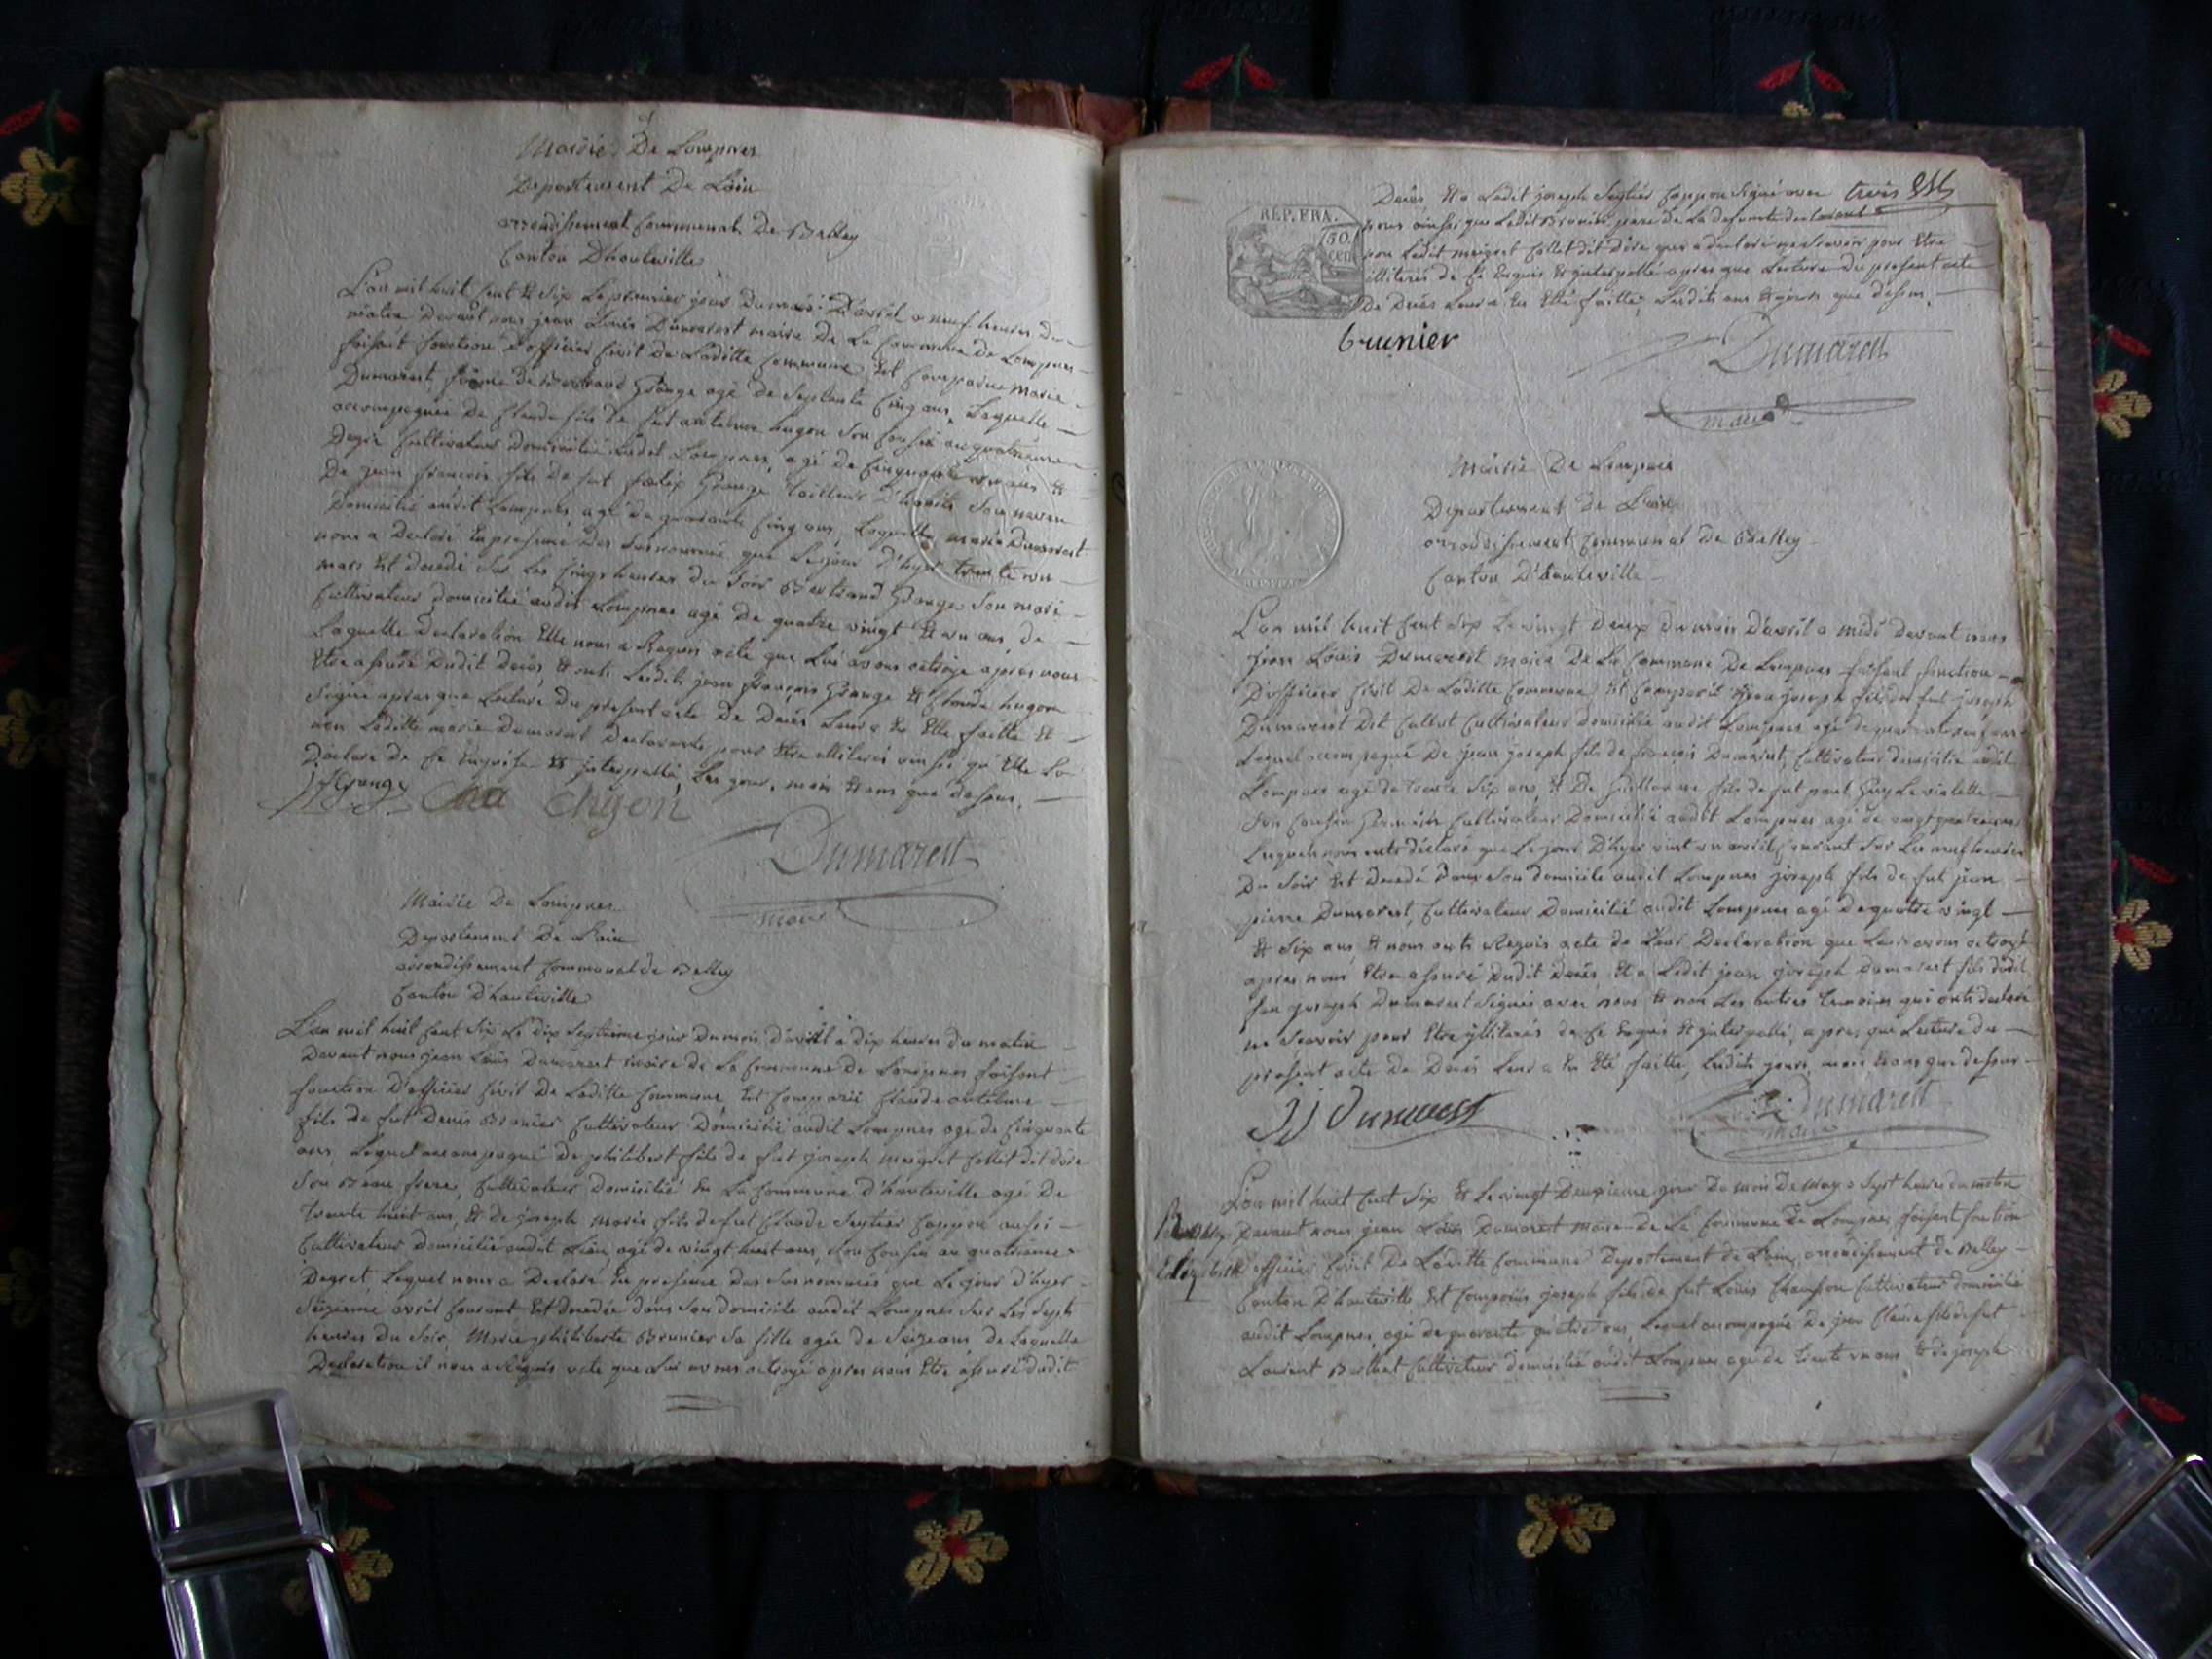 Mairie De Lompnes
Departement De Lain
arrondissement Communal De Belley
Canton Dhauteville
L'an mil huit Cent & Six Le premier jour du mois D'avril a neuf heures du
matin Devant nous jean Louis Dumarest maire De La Commune de Lompnes
faisant fonction d'officier Civil De Laditte Commune Est Comparüe Marie
Dumarest, femme de Bertrand Grange agé de Septante Cinq ans, Laquelle
accompagnée De Claude fils de fut antelme hugon Son Cousin au quatrieme
Degré Cultivateur Domicilié audit Lompnes, agé de Cinquante un ans &
De jean francois fils De fut felix Grange tailleur d'habits Son neveu
Domicilié audit Lompnes agé de quarante Cinq ans, Laquelle marie Dumarest
nous a Declaré En presence Des Susnommés que Le jour d'hyer trente un
mars Est decedé Sur Les Cinq heures du Soir Bertrand Grange Son mari
Cultivateur domicilié audit Lompnes agé de quatre vingt & un ans, de
Laquelle Declaration Elle nous a Requis acte que Lui avons octroyé apres nous
Etre assuré Dudit Decés, & ont Lesdits jean françois Grange & Claude hugon
Signé apres que Lecture du present acte De Decés Leur a Eu Eté faitte Et
non Laditte marie Dumarest Declarante pour Etre illiterée ainsi qu'Elle La
Declaré de Ce Enquise & interpellé, Les jour, mois & ans que dessus.
jf Grange Cha Chgon
Dumarest
maire
Mairie De Lompnes
Departement De Lain
arrondissement Communal de Belley
Canton D'hauteville
L'an mil huit Cent Six Le dix Septieme jour du mois d'avril a dix heures du matin
Devant nous jean Louis Dumarest maire de La Commune de Lompnes faisant
fonction D'officier Civil De Laditte Commune Est Comparü Claude antelme
fils de fut Denis Brunier Cultivateur Domicilié audit Lompnes agé de Cinquante
ans, Lequel accompagné De philibert fils de fut joseph maigret Collet dit dôre
Son Beau frere, Cultivateur domicilié En La Commune d'hauteville agé De
trente huit ans, & de joseph marie fils de fut Claude Seytier Cappon aussi
Cultivateur Domicilié audit Lieu, agé de vingt huit ans, Son Cousin au quatrieme
Degret, Lequel nous a Declaré En presence Des Susnommés que Le jour d'hyer
Seizieme avril Courant Est decedée dans Son domicile audit Lompnes Sur Les Sept
heures du Soir, Marie philiberte Brunier Sa fille agée de Seize ans, de Laquelle
Declaration il nous a Requis acte que Lui avons octroyé apres nous Etre assuré dudit
trois
Decés, Et a Ledit joseph Seytier Cappon Signé avec
nous ainsi que Ledit Brunier pere de La defunte declarant
non Ledit maigret Collet dit dôre qui a declaré ne Scavoir pour Etre
illiteré de Ce Enquis & interpellé apres que Lecture du present acte
De Decés Leur a Eu Eté faitte, Lesdits ans & jours que dessus.
REP. FRA.
50.
cen
brunier
Dumarest
maire
Mairie De Lompnes
Departement De Lain
arrondissement Communal de Belley
Canton D'hauteville
L'an mil huit Cent Six Le vingt Deux du mois D'avril a midi Devant nous
jean Louis Dumarest maire De La Commune De Lompnes faisant fonction
D'officier Civil De Laditte Commune Est Comparü jean joseph fils de fut joseph
Dumarest Dit Callot Cultivateur Domicilié audit Lompnes agé de
Lequel accompagné De jean joseph fils de francois Dumarest, Cultivateur domicilié audit
Lompnes agé de trente Six ans & De Guillaume fils de fut paul Guy Levialette
Son Cousin Germain Cultivateur Domicilié audit Lompnes agé de vingt quatre ans
Lesquels nous ont declaré que Le jour D'hyer vint un avril Courant Sur Les neuf heures
Du Soir Est Decedé Dans Son domicile audit Lompnes joseph fils de fut jean
pierre Dumarest, Cultivateur Domicilié audit Lompnes agé de quatre vingt
& Six ans, & nous ont Requis acte de Leur Declaration que Leur avons octroyé
apres nous Etre assuré Dudit Decés, Et a Ledit jean joseph Dumarest fils dudit
feu joseph Dumarest Signé avec nous & non Les autres temoins qui ont declaré
ne Scavoir pour Etre jlliterés de Ce Enquis & jnterpellé, apres que Lecture du
présent acte De Decés Leur a Eu Eté faitte, Lesdits jours, mois & ans que dessus
JJ Dumarest
Dumarest
maire
L'an mil huit Cent Six & Le vingt Deuxieme jour Du mois De may a Sept heures du matin
Devant nous jean Louis Dumarest maire De La Commune De Lompnes faisant fonction
officier Civil De Laditte Commune Departement de Lain, arrondissement de Belley
Canton D'hauteville Est Comparüs joseph fils de fut Louis Chanson Cultivateur domicilié
audit Lompnes, agé de quarante quatre ans, Lequel accompagné De jean Claude fils de fut
Laurent Barbet Cultivateur domicilié audit Lompnes agé de trente un ans & de joseph